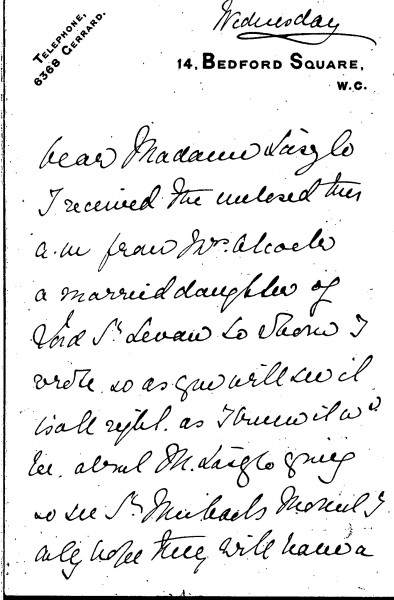 Wednesday
TELEPHONE,
6368 GERRARD.
14, BEDFORD SQUARE,
W.C.
Dear Madame László
I received the enclosed this
a.m from Mrs.
a married daughter of
Lord St. Levan to whom I
wrote. so as you will see it
is all right. as I knew it wd
be. about M. László going
to see St. Michaels Mount I
only hope they will have a